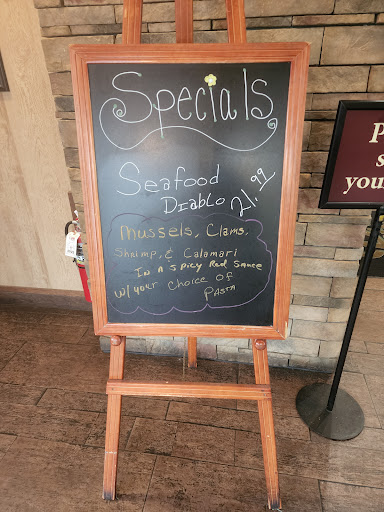 Specials
Seafood
Diablo 21.99
Mussels, Clams,
Shrimp, & Calamari
In a Spicy Red Sauce
w/ your choice of
Pasta
P
s
you